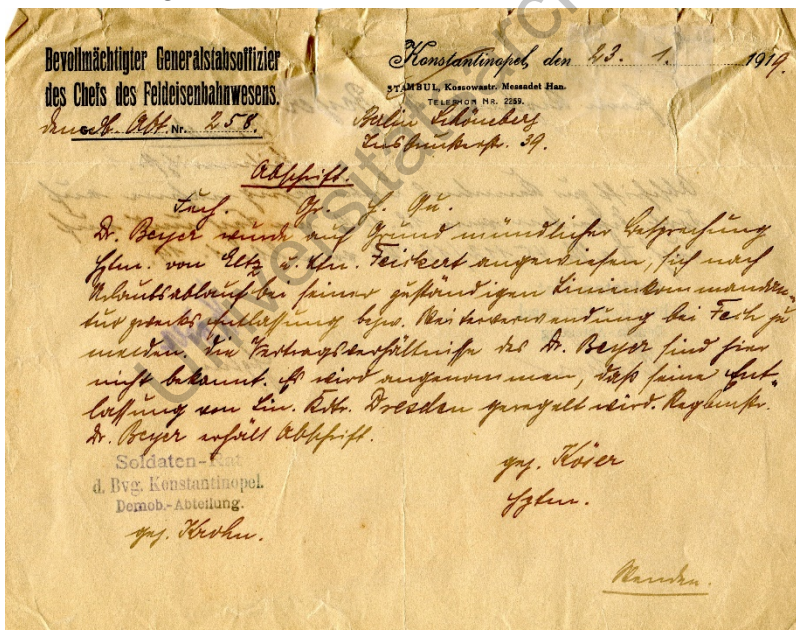 Bevollmächtigter Generalstabsoffizier
des Chefs des Feldeisenbahnwesens.
Demob. Abt. Nr. 258.
Konstantinopel, den 23. 1. 1919.
STAMBUL, Kossowastr. Messadet Han.
TELEPHON NR. 2259.
Berlin Schöneberg
Insbruckerstr. 39.
Abschrift.
Fech. Gr. H. Qu.
Dr. Beyer wurde auf Grund mündlicher Besprechung
Hptm. von Eltz u. Ltn. Feickert angewiesen, sich nach
Urlaubsablauf bei seiner zuständigen Linienkommandan-
tur zwecks Entlassung bezw. Weiterverwendung bei Fech zu
melden. Die Vertragsverhältnisse des Dr. Beyer sind hier
nicht bekannt. Es wird angenommen, daß seine Ent-
lassung von Lin. Kdtr. Dresden geregelt wird. Regbmstr.
Dr. Beyer erhält Abschrift.
Soldaten-Rat
d. Bvg. Konstantinopel.
Demob.-Abteilung.
gez. Krohn.
gez. Köser
Hptm.
Wenden.